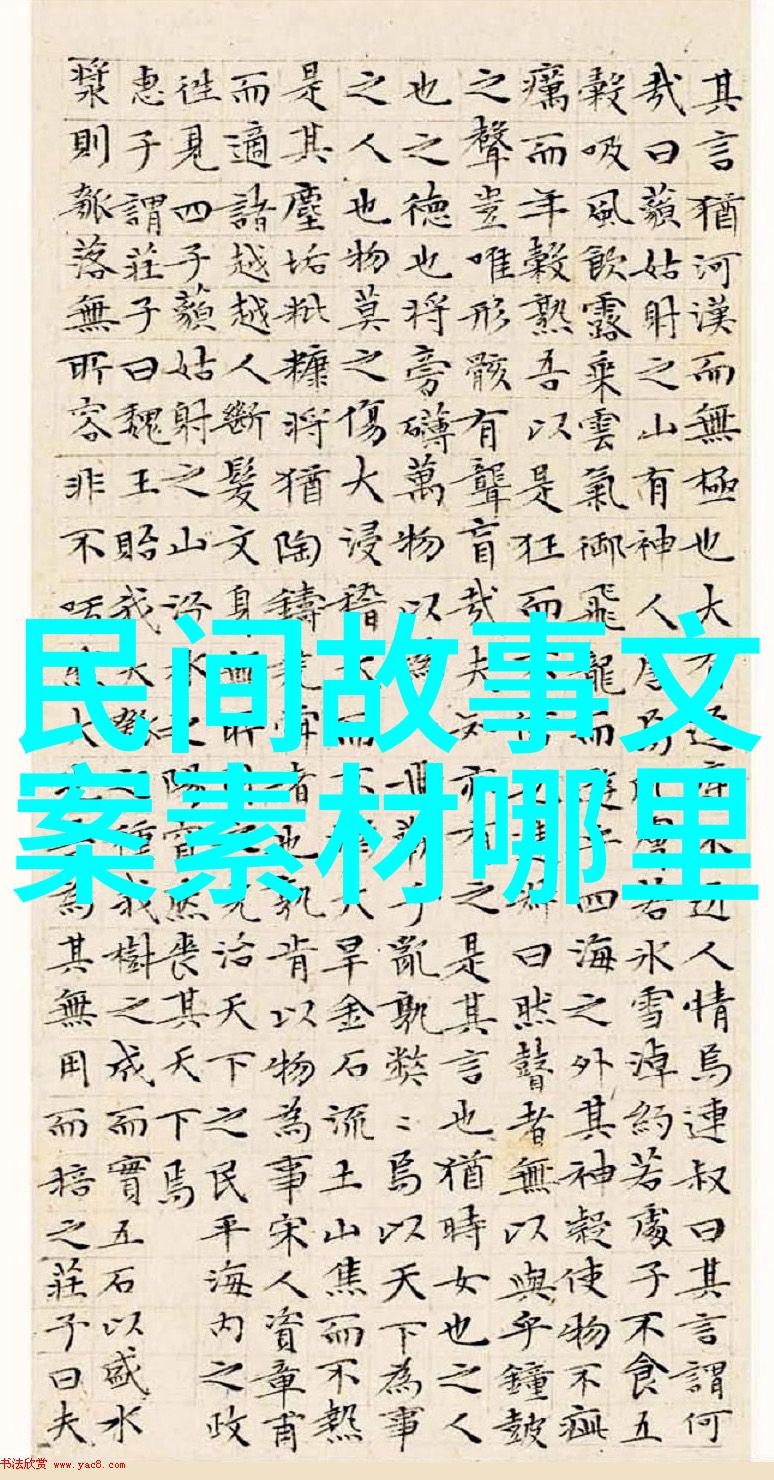 民间故事文
案素材哪里
其言猶河漢而無極也大有人情焉連叔曰其言謂何
哉曰藐姑射之山有神人居若冰雪淖約若處子不食五
穀吸風飲露乘雲氣御飛龍而四海之外其神凝使物不疵
癘而年穀熟吾以是狂而曰然瞽者無以與乎鐘鼓
之聲豈唯形骸有聾盲哉夫知亦有之是其言也猶時女也之人
也之德也將旁礴萬物以為世蘄乎亂孰弊〻焉以天下為事
之人也物莫之傷大浸稽而大旱金石流土山焦而不熱
是其塵垢粃糠將猶陶鑄堯舜者也孰肯以物為事宋人資章甫
而適諸越越人斷髮文身無所治天下之民平海内之政
往見四子藐姑射之山汾水之陽窅然喪其天下焉
惠子謂莊子曰魏王貽我大種我樹之成而實五石以盛水
漿則瓠落無所容非不呺大為其無用而掊之莊子曰夫
书法欣赏 www.yac8.com